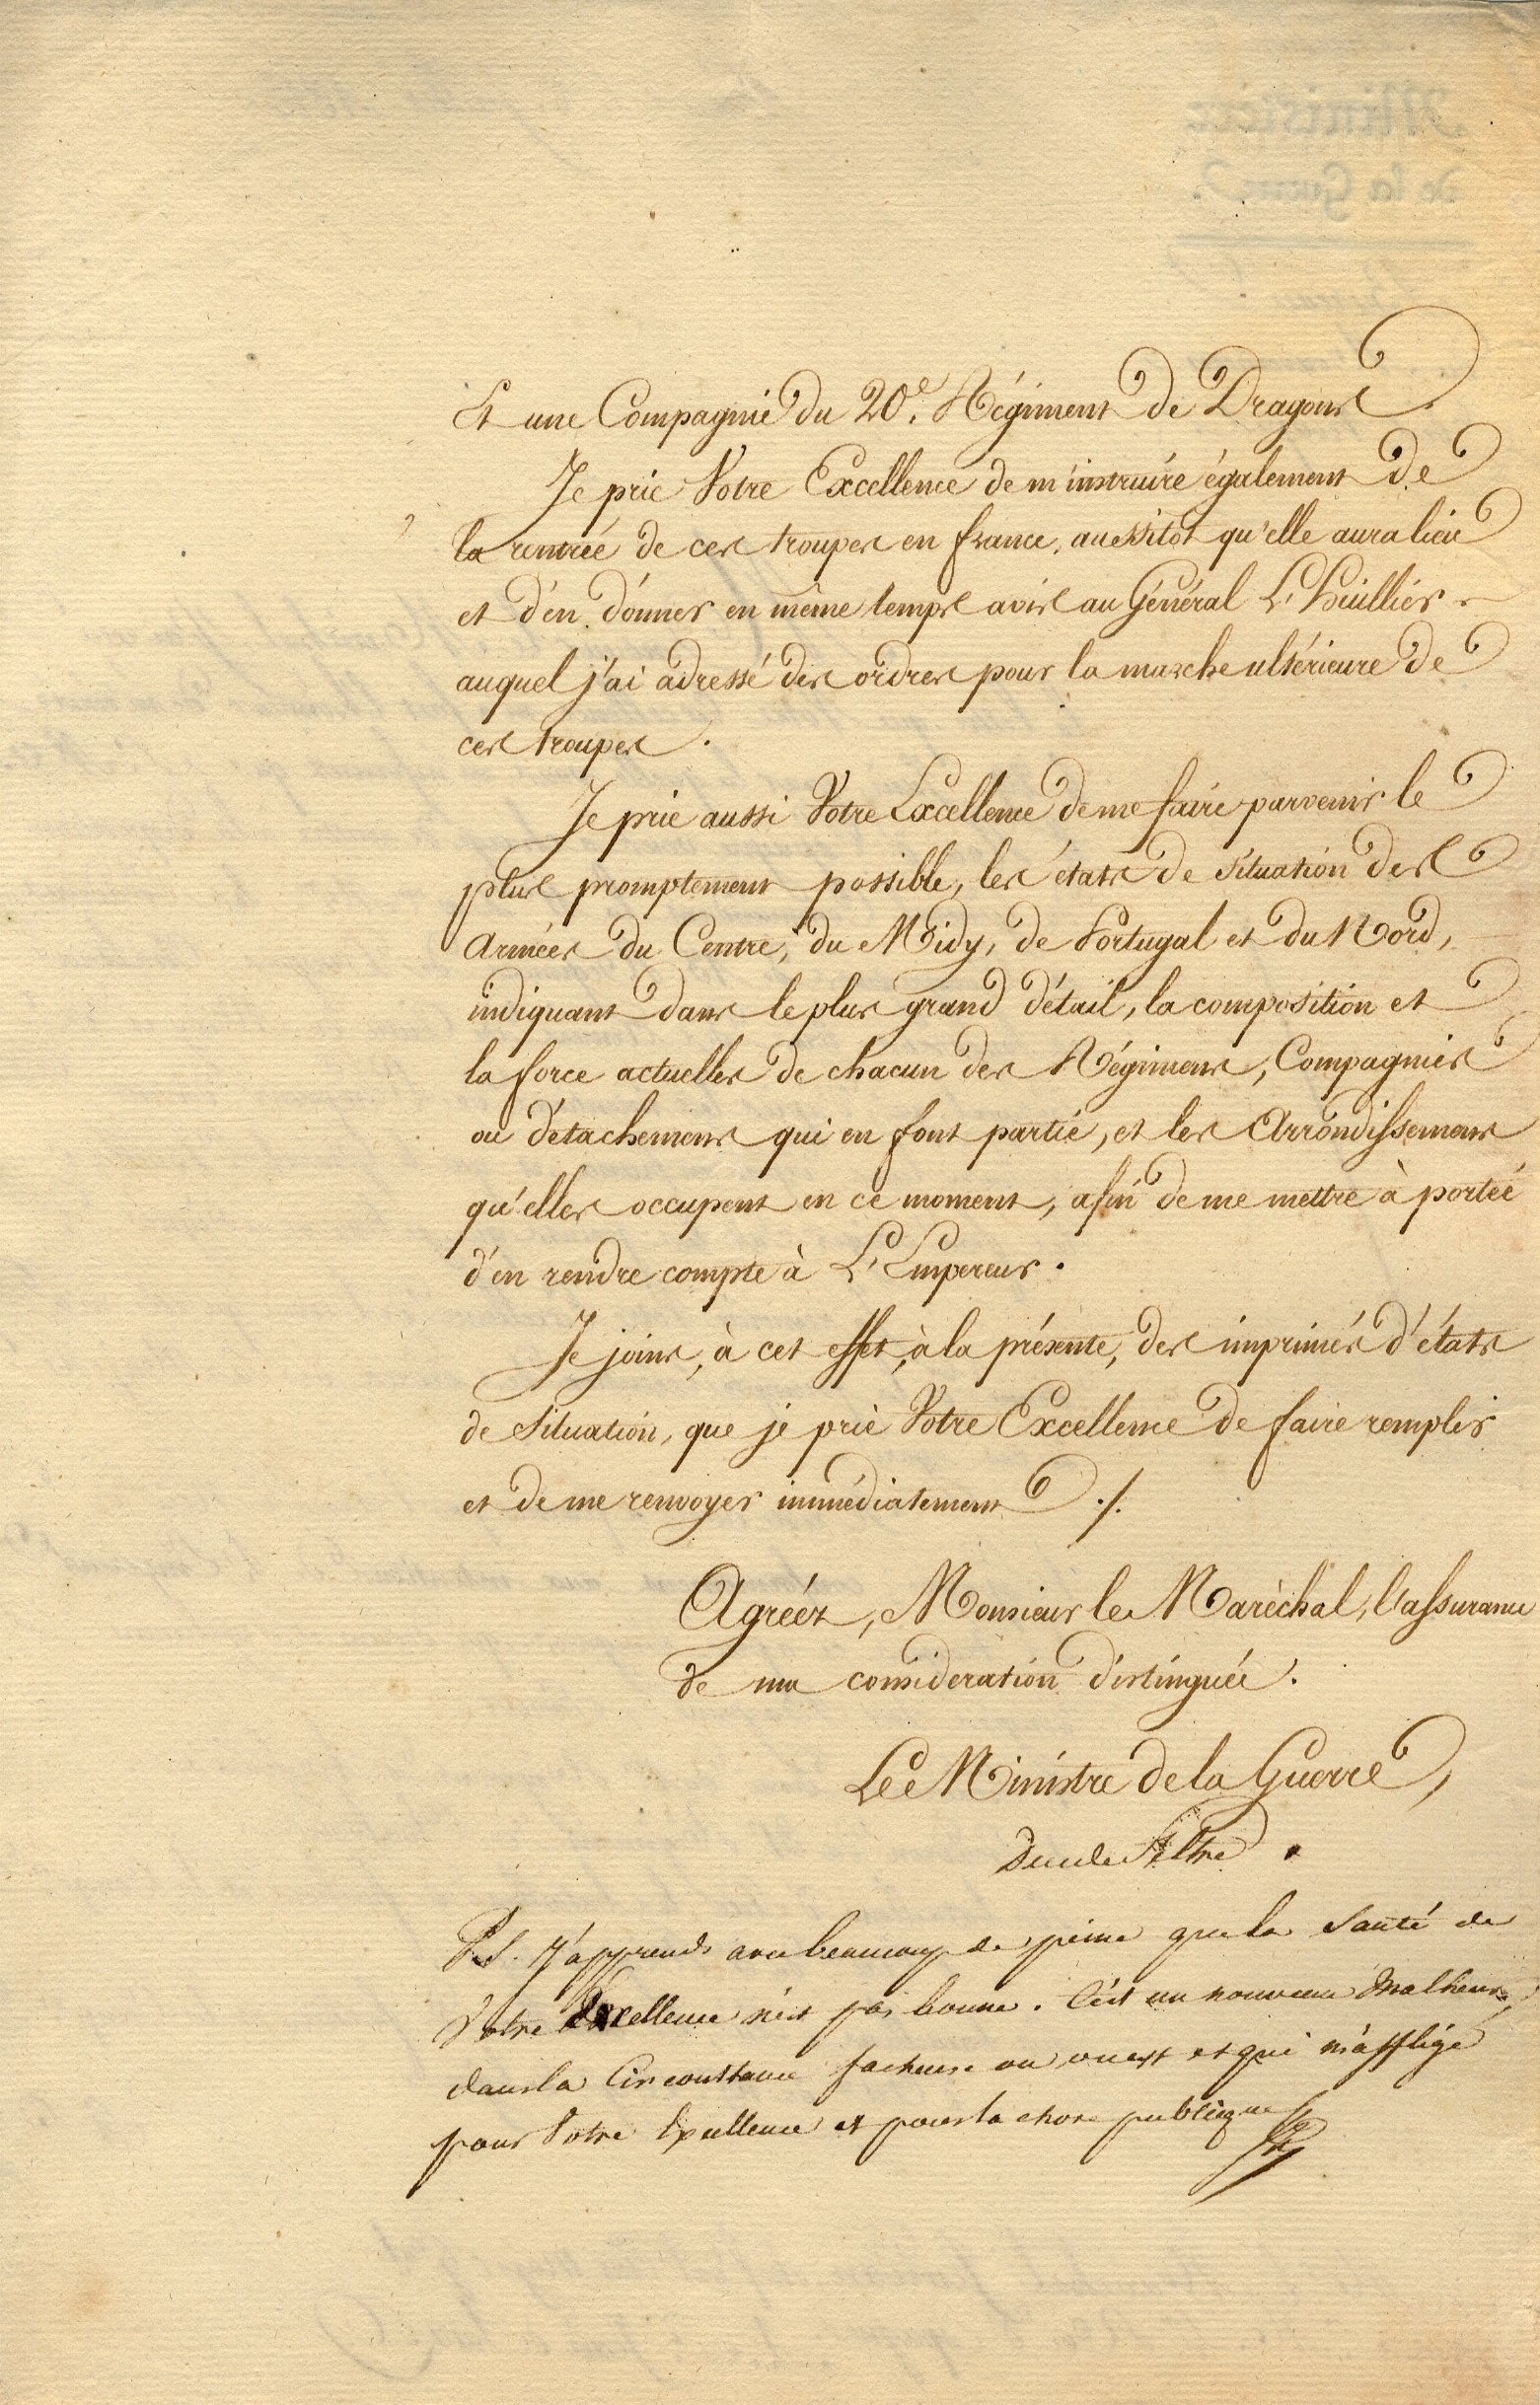 Et une Compagnie du 20e. Régiment de Dragons.
Je prie Votre Excellence de m'instruire également de
la rentrée de ces troupes en france, aussitôt qu'elle aura lieu
et d'en donner en même temps avis au Général L'huillier
auquel j'ai adressé des ordres pour la marche ultérieure de
ces troupes.
Je prie aussi Votre Excellence de me faire parvenir le
plus promptement possible, les états de Situation des
Armées du Centre, du Midy, de Portugal et du Nord,
indiquant dans le plus grand détail, la composition et
la force actuelles de chacun des Régimens, Compagnies
ou détachemens qui en font partie, et les Arrondissemens
qu'elles occupent en ce moment, afin de me mettre à portée
d'en rendre compte à L'Empereur.
Je joins, à cet effet, à la présente, des imprimés d'états
de Situation, que je prie Votre Excellence de faire remplir
et de me renvoyer immédiatement ./.
Agréez, Monsieur le Maréchal, l'assurance
de ma consideration distinguée.
Le Ministre de la Guerre,
Duc de Feltre.
P.S. J'apprends avec beaucoup de peine que la Santé de
Votre Excellence n'est pas bonne. C'est un nouveau Malheur,
dans la Circonstance facheuse ou on est et qui m'afflige
pour Votre Excellence et pour la chose publique
Ministère
de la Guerre.